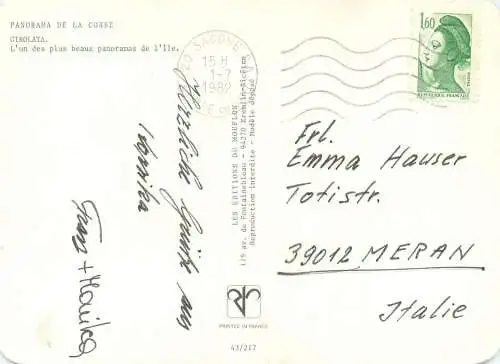 PANORAMA DE LA CORSE
GIROLATA.
L'un des plus beaux panoramas de l'Ile.
Herzliche Grüße aus
Korsika
Franz + Monika
LES EDITIONS DU MOUFLON
119 av. de Fontainebleau - 94270 Kremlin-Bicêtre
Reproduction interdite - Modèle déposé
PRINTED IN FRANCE
43/217
SAGONE
15 H
1-7
1982
1,60
REPUBLIQUE FRANÇAISE
Frl.
Emma Hauser
Totistr.
39012 MERAN
Italie